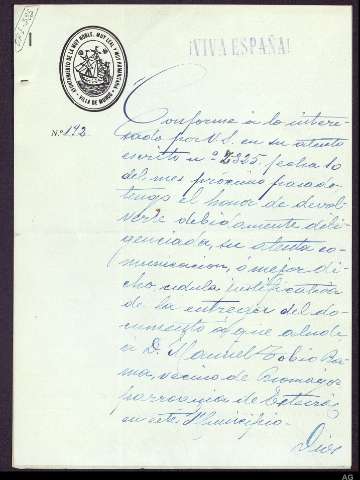 ¡VIVA ESPAÑA!
AYUNTAMIENTO DE LA MUY NOBLE, MUY LEAL Y MUY HUMANITARIA
VILLA DE MUROS
N.º 192
Conforme a lo intere-
sado por V.S. en su atento
escrito nº 2325 fecha 10
del mes próximo pasado
tengo el honor de devol-
verle debidamente dili-
genciada, su atenta co-
municacion, ó mejor di-
cho cedula justificativa
de la entrega del do-
cumento a que alude
a D. Manuel Tobio
vecino de
parroquia de Esteiro,
en este Municipio.
Dios
AG